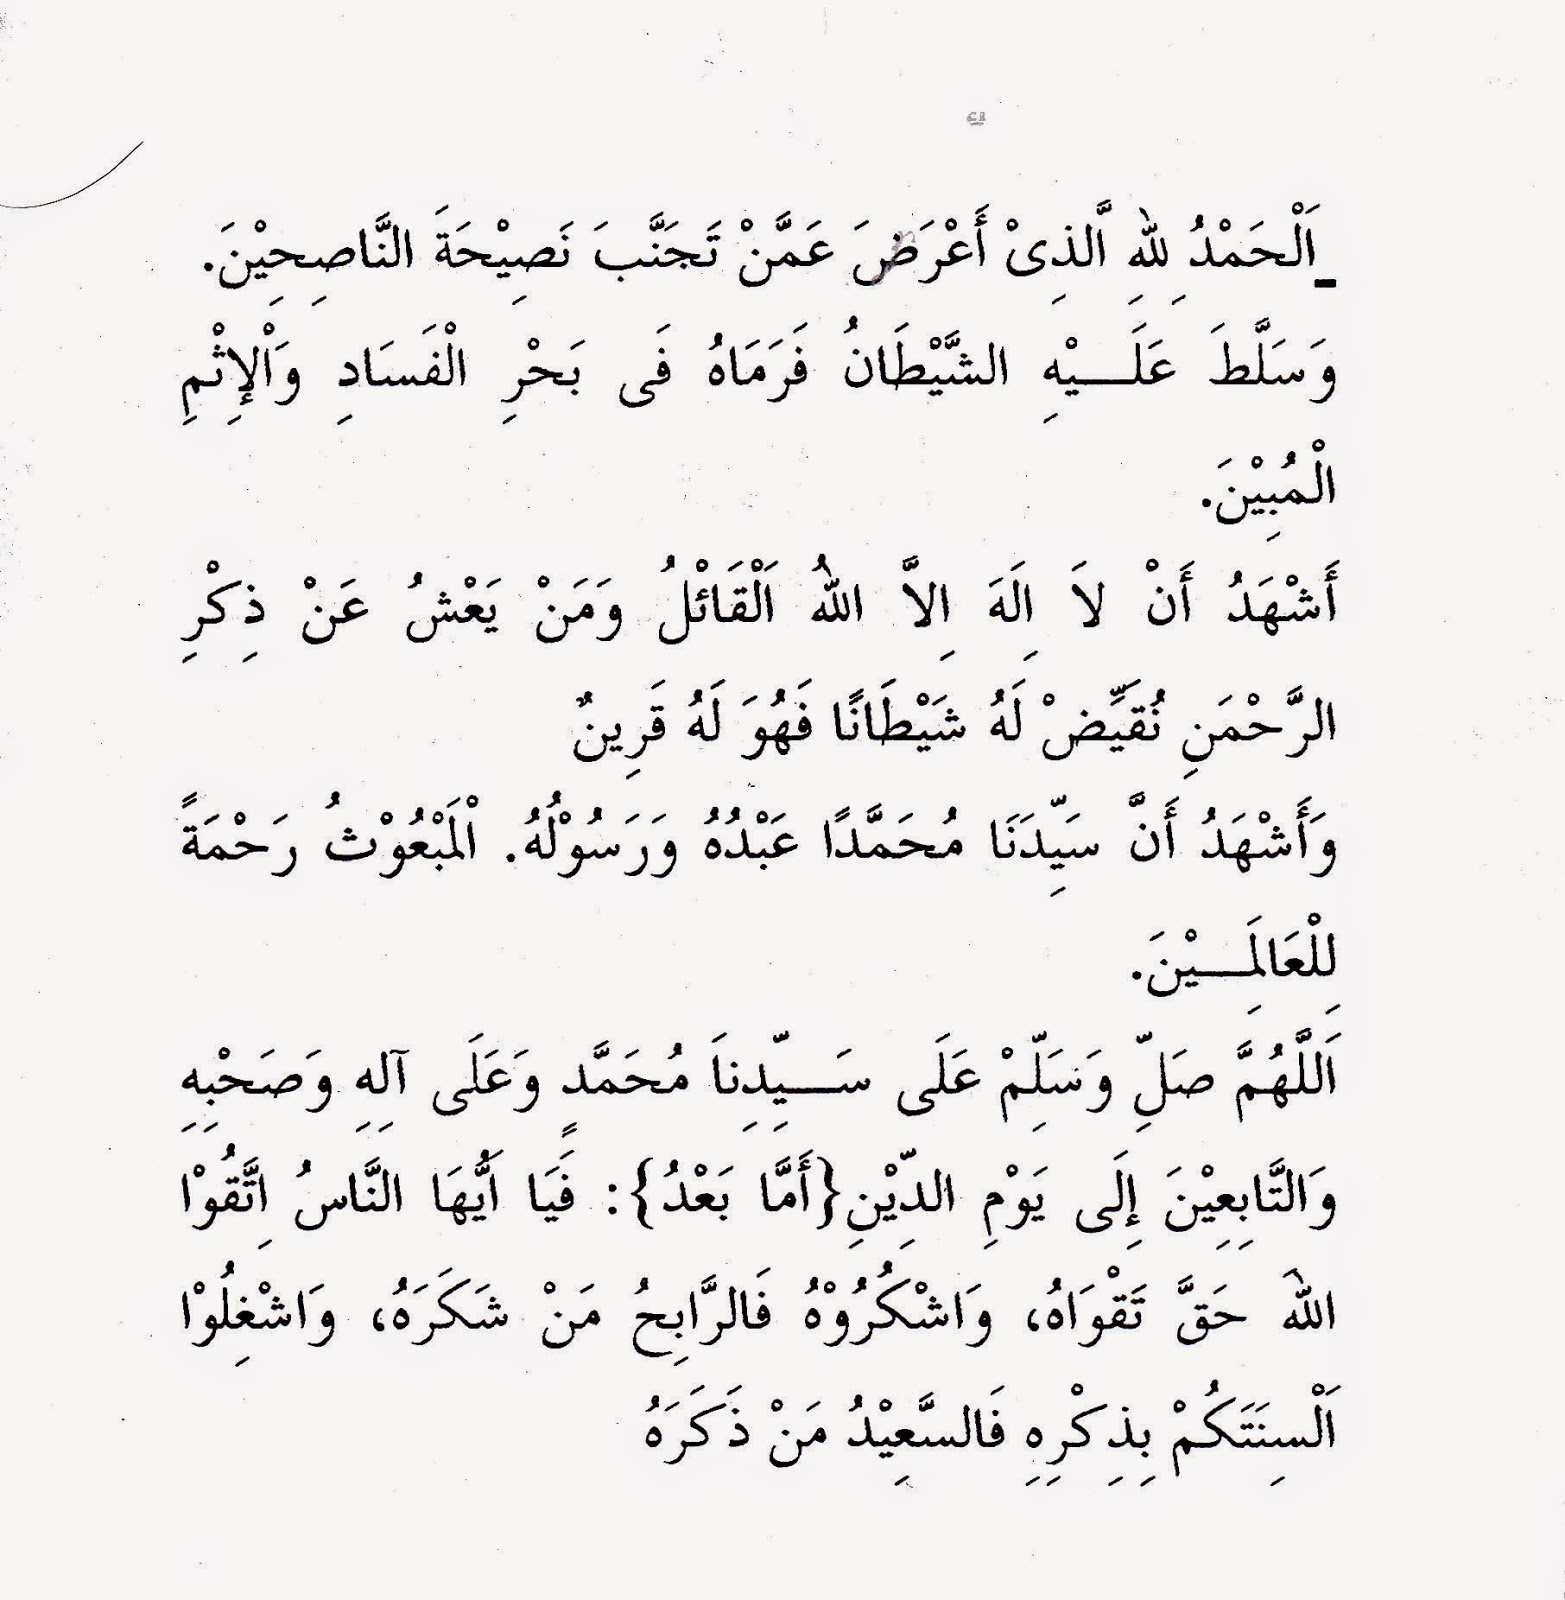 اَلْحَمْدُ لِلّٰهِ الَّذِىْ أَعْرَضَ عَمَّنْ تَجَنَّبَ نَصِيْحَةَ النَّاصِحِيْنَ.
وَسَلَّطَ عَلَـــيْهِ الشَّيْطَانُ فَرَمَاهُ فَى بَحْرِ الْفَسَادِ وَاْلإِثْمِ
الْمُبِيْنَ.
أَشْهَدُ أَنْ لاَ اِلَهَ اِلاَّ اللهُ اَلْقَائْلُ وَمَنْ يَعْشُ عَنْ ذِكْرِ
الرَّحْمَنِ نُقَيِّضْ لَهُ شَيْطَانًا فَهُوَ لَهُ قَرِينٌ
وَأَشْهَدُ أَنَّ سَيِّدَنَا مُحَمَّدًا عَبْدُهُ وَرَسُوْلُهُ. اْلمَبْعُوْثُ رَحْمَةً
لِلْعَالَمِـــيْنَ.
اَللَّهُمَّ صَلِّ وَسَلِّمْ عَلَى سَـــيِّدِناَ مُحَمَّدٍ وَعَلَى آلِهِ وَصَحْبِهِ
وَالتَّابِعِيْنَ إِلَى يَوْمِ الدِّيْنِ{أَمَّا بَعْدُ}: فَيَا اَيُّهَا النَّاسُ اِتَّقُوْا
اللهَ حَقَّ تَقْوَاهُ، وَاشْكُرُوْهُ فَالرَّابِحُ مَنْ شَكَرَهُ، وَاشْغِلُوْا
اَلْسِنَتَكُمْ بِذِكْرِهِ فَالسَّعِيْدُ مَنْ ذَكَرَهُ